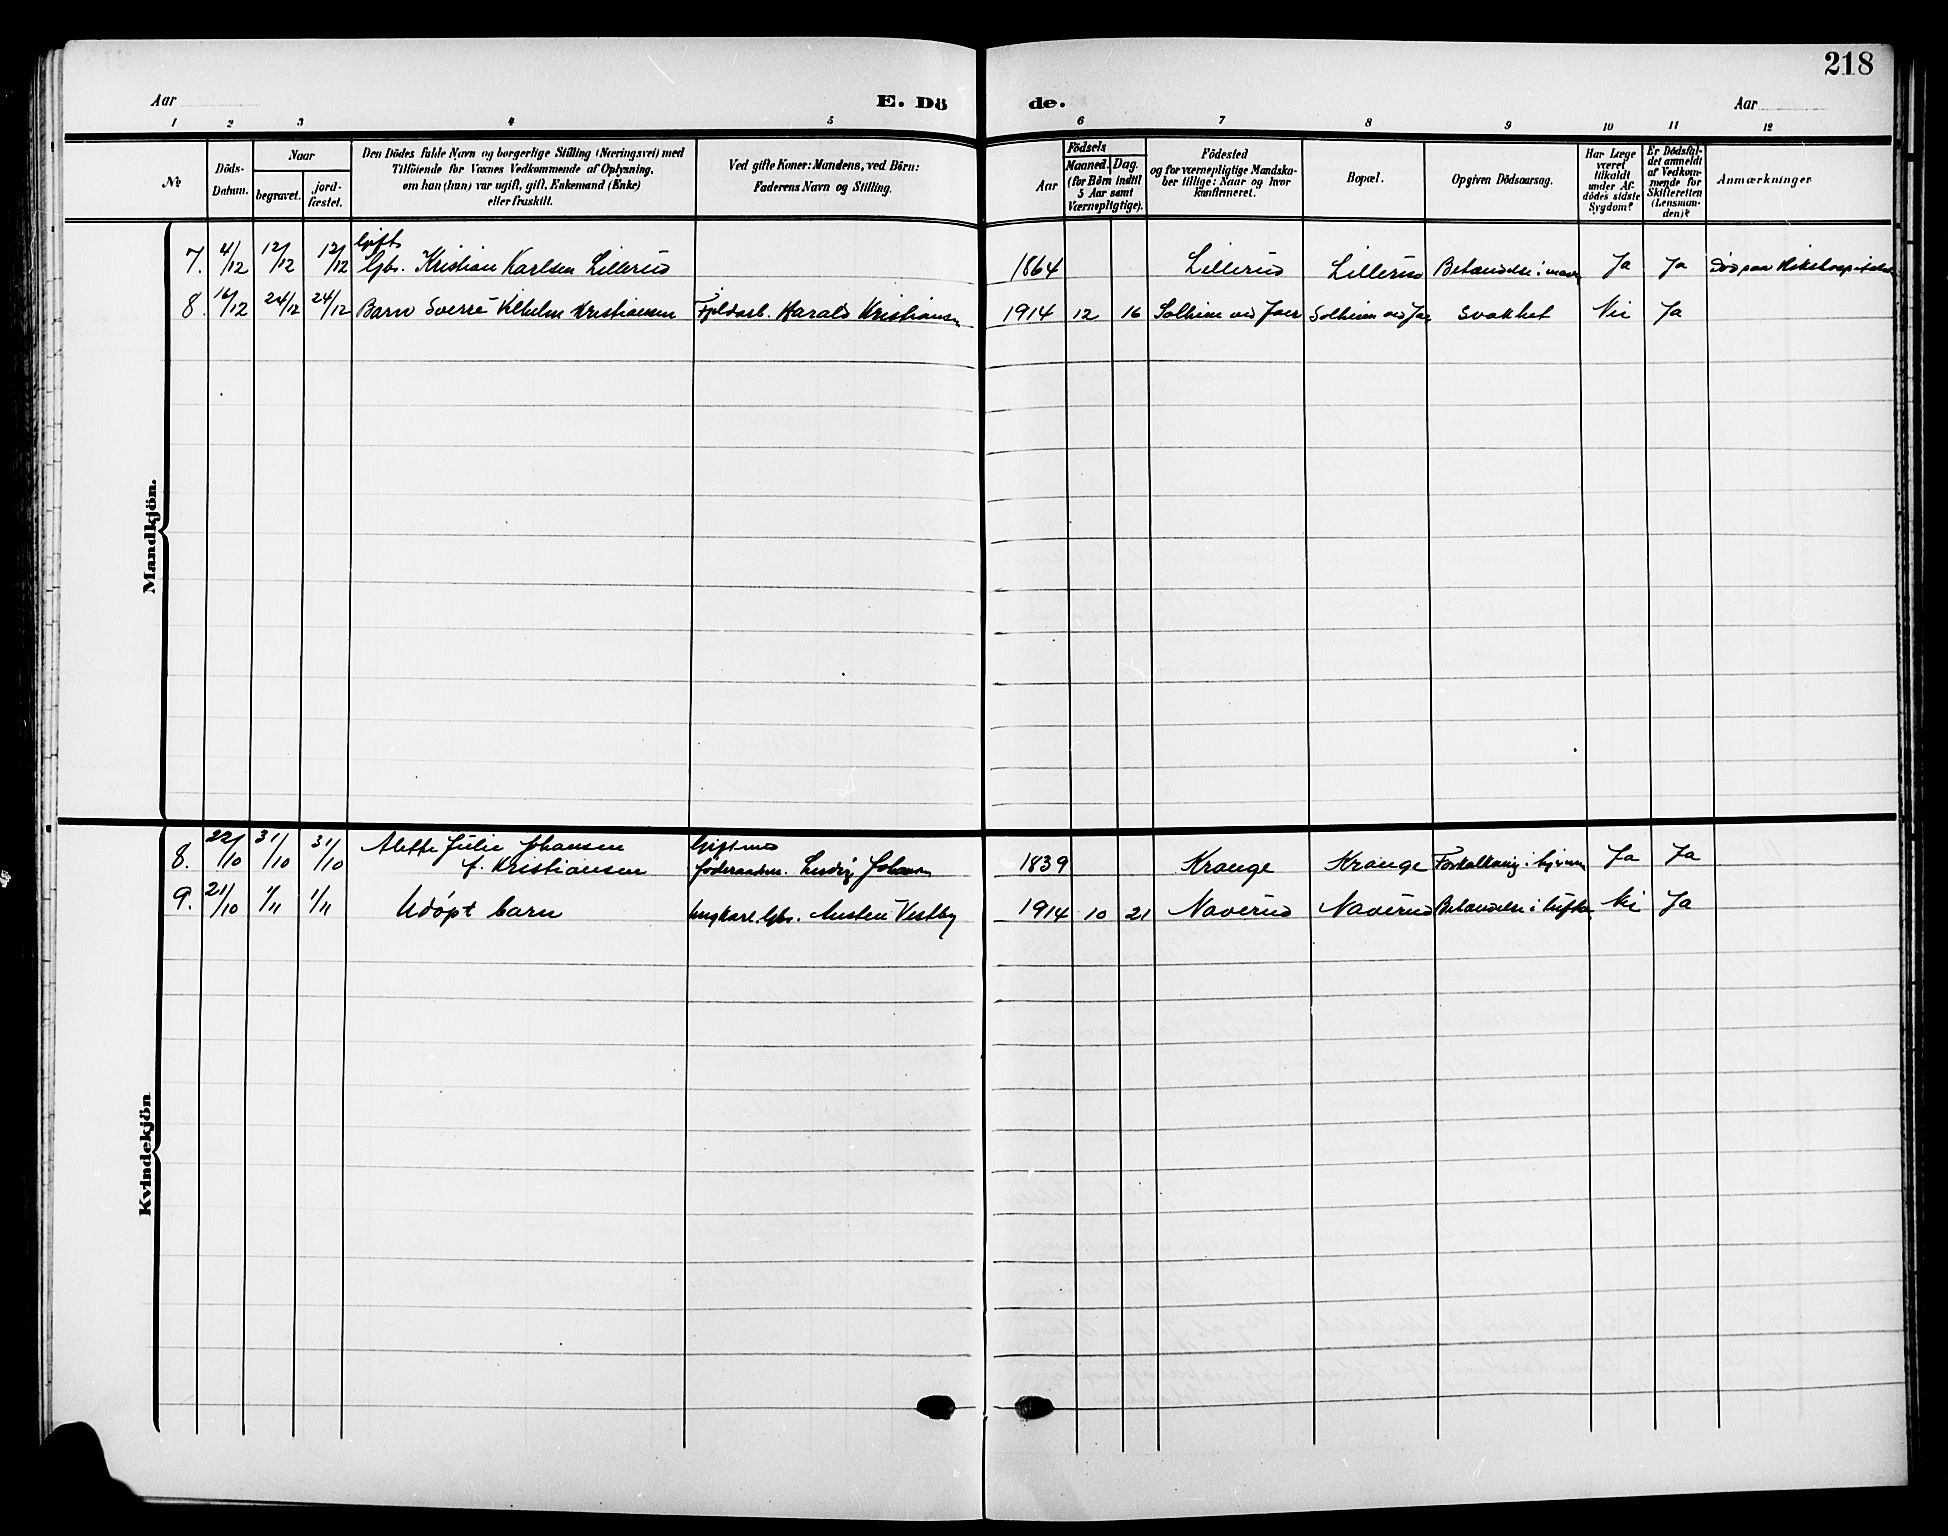 218
Aar
E. Dö
de.
Aar
1 2 3 4 5 6 7 8 9 10 11 12
No
Döds-
Datum.
Naar
begravet.
jord-
fæstet.
Den Dödes fulde Navn og borgerlige Stilling (Næringsvei) med
Tilföiende for Voxnes Vedkommende af Oplysning,
om han (hun) var ugift, gift, Enkemand (Enke)
eller fraskilt.
Ved gifte Koner: Mandens, ved Börn:
Faderens Navn og Stilling.
Födsels
Aar
Maaned.
Dag.
(for Börn indtil
5 Aar samt
Værnepligtige).
Födested
og for værnepligtige Mandska-
ber tillige: Naar og hvor
konfirmeret.
Bopæl.
Opgiven Dödsaarsag.
Har Læge
været
tilkaldt
under Af-
dödes sidste
Sygdom?
Er Dödsfal-
det anmeldt
af Vedkom-
mende for
Skifteretten
(Lensman-
den)?
Anmærkninger
Mandkjön.
Gift
7. 4/12 12/12 12/12 Gbr. Kristian Karlsen Lillerud 1864 Lillerud Lillerud Betændelse i maven Ja Ja Død paa Rikshospitalet
8. 16/12 24/12 24/12 Barn Sverre Vilhelm Kristiansen Fjeldarb. Harald Kristiansen 1914 12 16 Solheim ved Jaer Solheim ved Jaer Svakhet Nei Ja
Kvindekjön
8. 22/10 31/10 31/10 Alette Julie Johansen Gift med
f. Kristiansen føderaadsm. Ludvig Johansen 1839 Krange Krange Forkalkning i hjernen Ja Ja
9. 21/10 1/11 1/11 Udøpt barn Ungkarl. Gbr. Austen Vestby 1914 10 21 Naverud Naverud Betændelse i Nei Ja